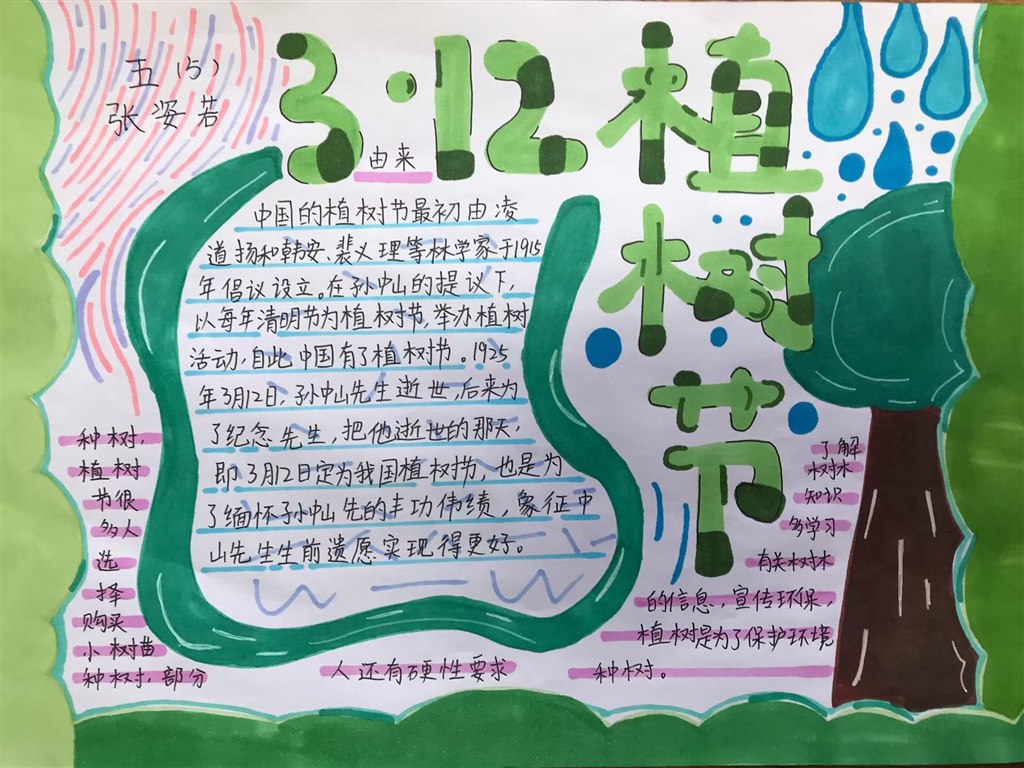 五(5)
张姿若
3·12植
树
节
由来
中国的植树节最初由凌
道扬和韩安、裴义理等林学家于1915
年倡议设立。在孙中山的提议下,
以每年清明节为植树节,举办植树
活动,自此中国有了植树节。1925
年3月12日,孙中山先生逝世,后来为
了纪念先生,把他逝世的那天,
即3月12日定为我国植树节,也是为
了缅怀孙中山先的丰功伟绩,象征中
山先生生前遗愿实现得更好。
种树,
植树
节很
多人
选
择
购买
小树苗
种树,部分
人还有硬性要求
种树。
了解
树木
知识
多学习
有关树木
的信息,宣传环保,
植树是为了保护环境